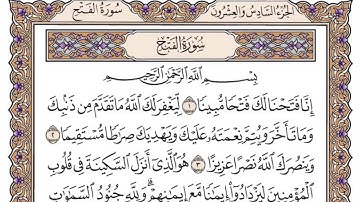 سُورَةُ الفَتْحِ
الجُزْءُ السَّادِسُ وَالعِشْرُونَ
سُورَةُ الفَتْحِ
بِسْمِ اللَّهِ الرَّحْمَٰنِ الرَّحِيمِ
إِنَّا فَتَحْنَا لَكَ فَتْحًا مُّبِينًا ١ لِّيَغْفِرَ لَكَ اللَّهُ مَا تَقَدَّمَ مِن ذَنۢبِكَ
وَمَا تَأَخَّرَ وَيُتِمَّ نِعْمَتَهُۥ عَلَيْكَ وَيَهْدِيَكَ صِرَٰطًا مُّسْتَقِيمًا ٢
وَيَنصُرَكَ اللَّهُ نَصْرًا عَزِيزًا ٣ هُوَ الَّذِي أَنزَلَ السَّكِينَةَ فِي قُلُوبِ
الْمُؤْمِنِينَ لِيَزْدَادُوٓا۟ إِيمَٰنًا مَّعَ إِيمَٰنِهِمْ ۗ وَلِلَّهِ جُنُودُ السَّمَٰوَٰتِ